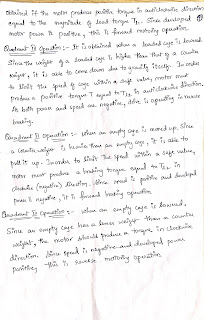 obtained if the motor produce positive torque in anticlockwise direction
equal to the magnitude of load torque TL1. Since developed
motor power is positive, this is forward motoring operation.
Quadrant IV operation:- It is obtained when a loaded cage is lowered
Since the weight of a loaded cage is higher than that of a counter
weight, it is able to come down due to gravity itself. In order
to limit the speed of cage within a safe value, motor must
produce a positive torque T equal to TL2 in anticlockwise direction.
As both power and speed are negative, drive is operating in reverse
braking.
Quadrant II operation:- When an empty cage is moved up, Since
a counter weight is heavier than an empty cage, it is able to
pull it up. In order to limit the speed within a safe value,
motor must produce a braking torque equal to TL2 in
clockwise (negative) direction. Since speed is positive and developed
power is negative, it is forward braking operation
Quadrant III operation:- When an empty cage is lowered,
Since an empty cage has a lesser weight than a counter
weight, the motor should produce a torque in clockwise
direction. Since speed is negative and developed power
positive, this is reverse motoring operation